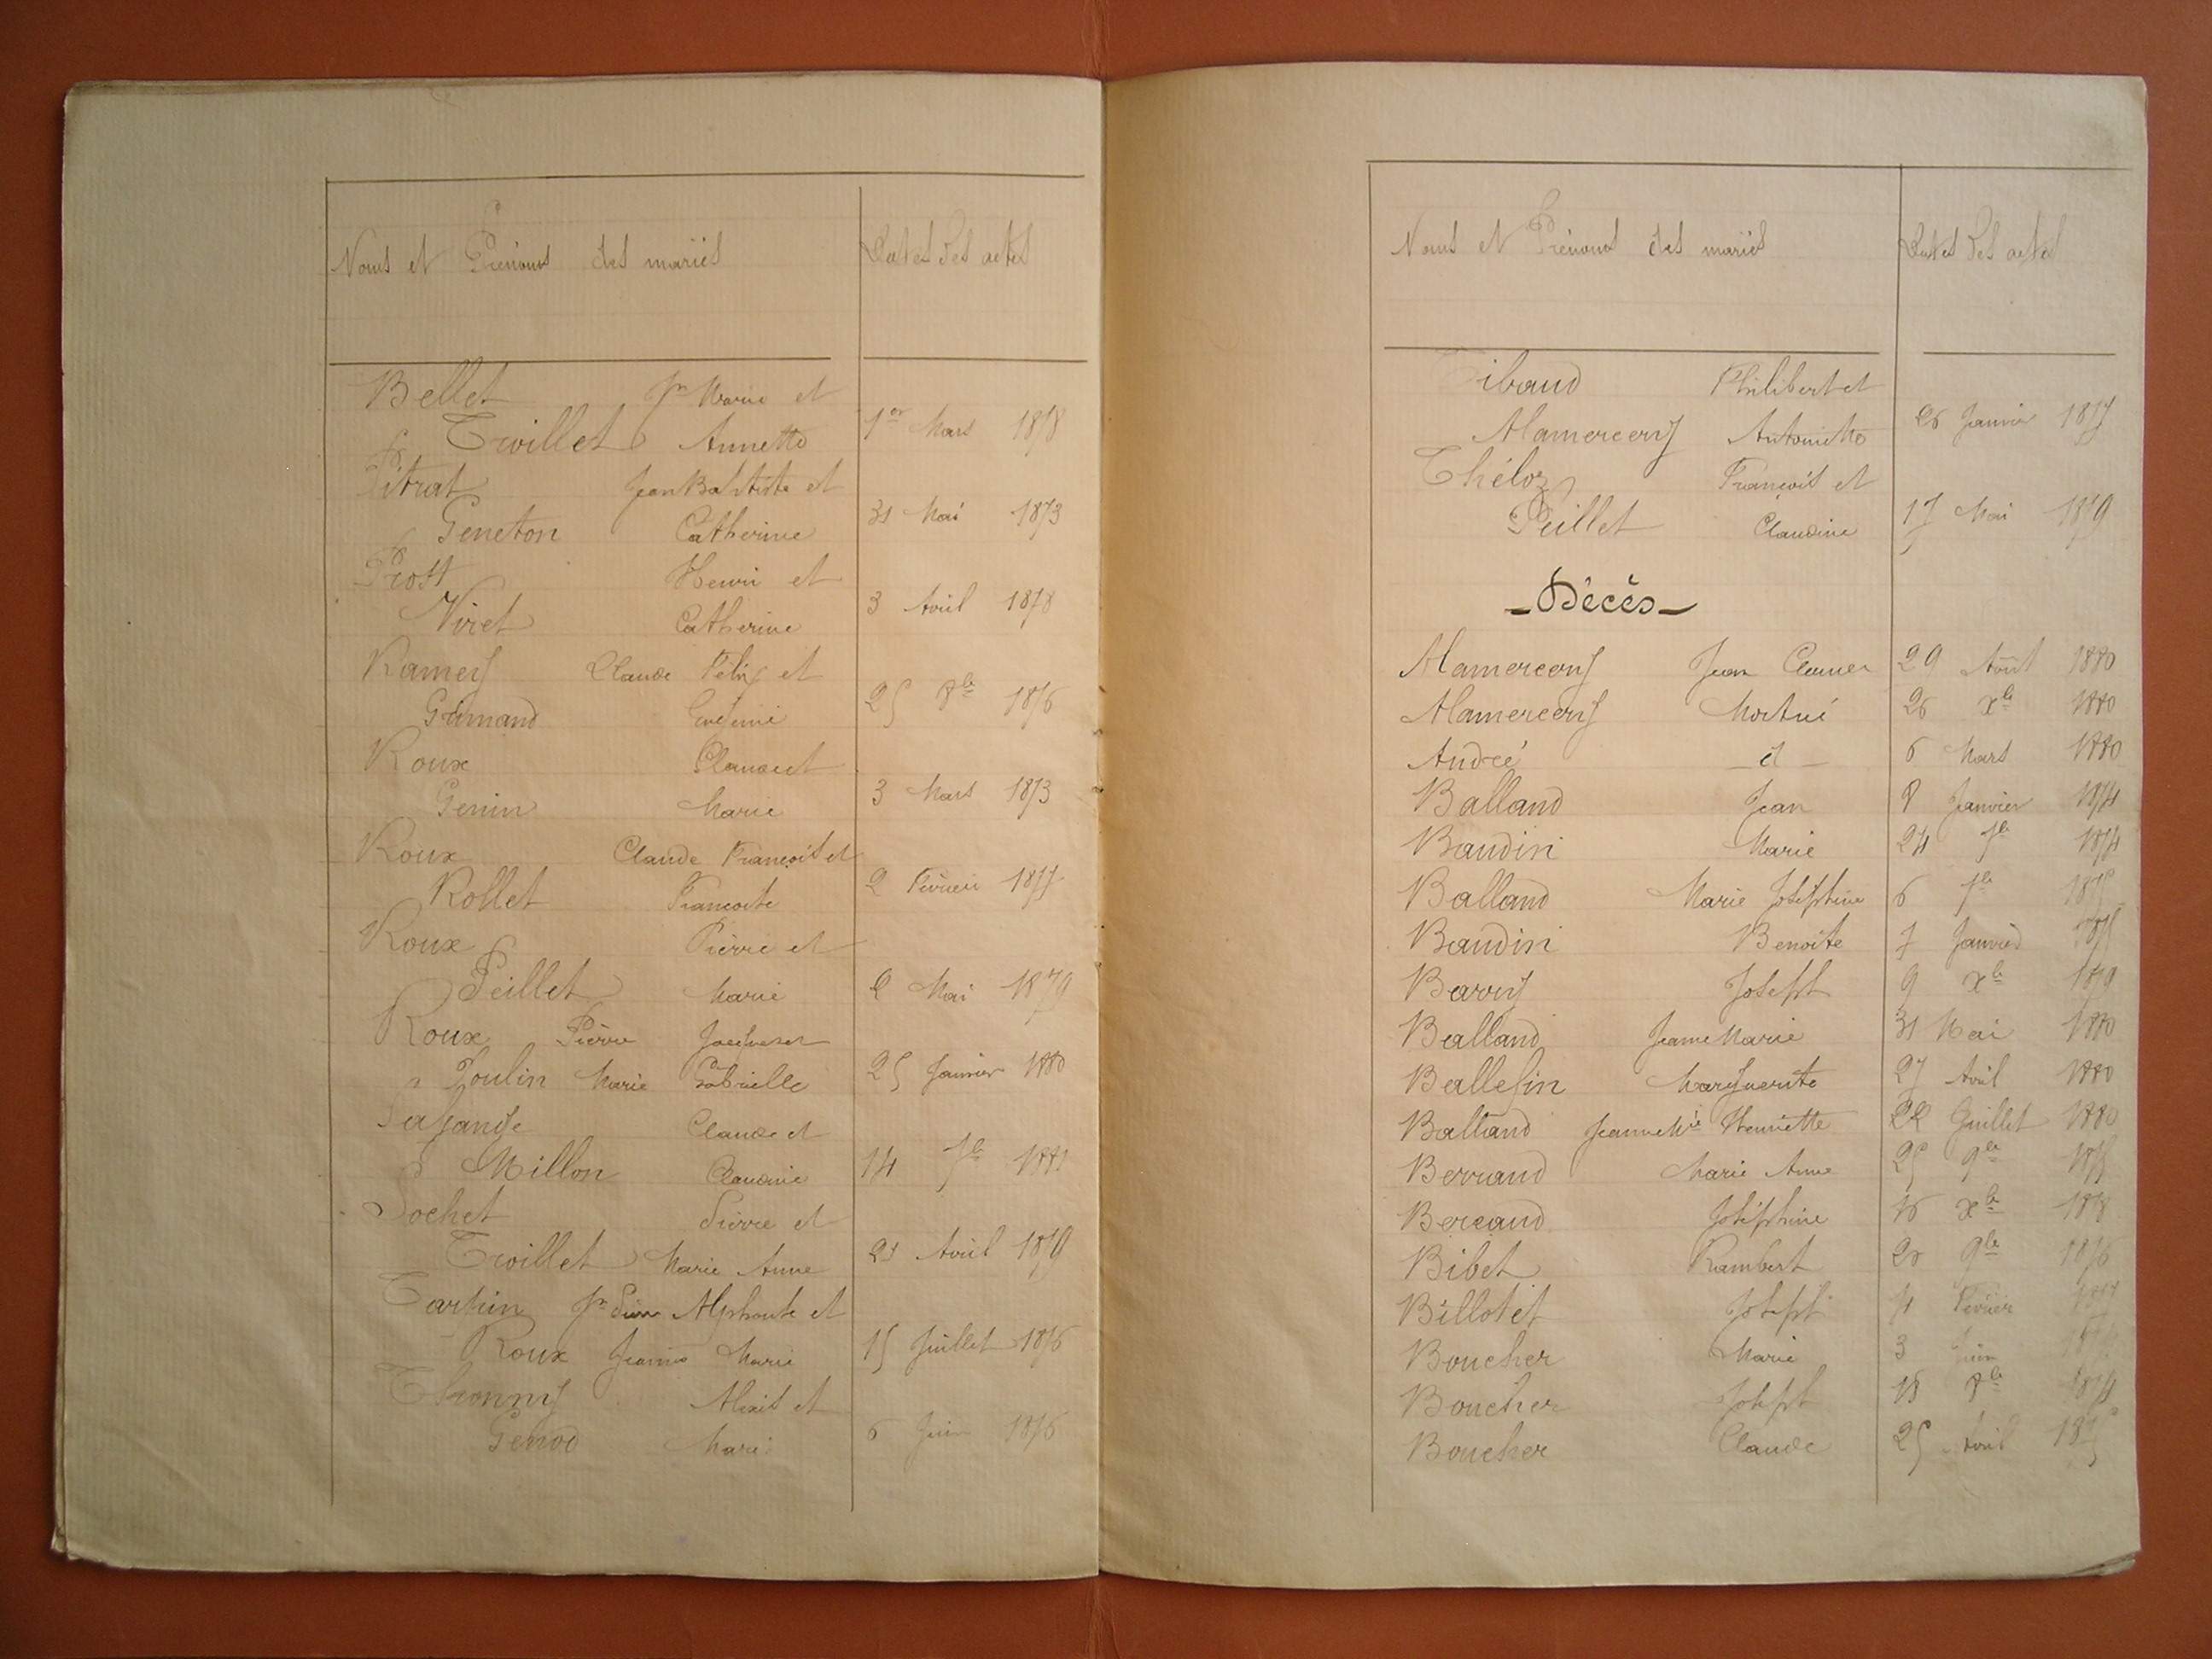 Noms et Prénoms des mariés Dates des actes
Bellet Jn Marie et
Trvillet Annette 1er Mars 1878
Pitrat Jean Baptiste et
Geneton Catherine 31 Mai 1873
Prost Henri et
Viret Catherine 3 Avril 1878
Ramey Claude Félix et
Gumand 25 8bre 1876
Roux Claude et
Genin Marie 3 Mars 1873
Roux Claude François et
Rollet Françoise 2 Février 1877
Roux Pierre et
Peillet Marie 2 Mai 1879
Roux Pierre Jacques et
Poulin Marie Gabrielle 25 Janvier 1880
Claude et
Millon Claudine 14 7bre 1881
Sochet Pierre et
Trvillet Marie Anne 21 Avril 1879
Tarpin Jn Alphonse et
Roux Jeanne Marie 15 Juillet 1876
Alexis et
Genod Marie 6 Juin 1876
Noms et Prénoms des mariés Dates des actes
Tibaud Philibert et
Alamercery Antoinette 26 Janvier 1877
Théloz François et
Peillet Claudine 17 Mai 1879
- Décès -
Alamercery Jean 29 Août 1880
Alamercery Mort né 26 Xbre 1880
André - d - 6 Mars 1880
Balland Jean 8 Janvier 1874
Baudin Marie 24 7bre 1874
Balland Marie Joséphine 6 7bre
Baudin Benoite 7 Janvier 1875
Barry Joseph 9 Xbre 1879
Balland Jeanne Marie 31 Mai 1880
Ballefin Marguerite 27 Avril 1880
Balland Jeanne Mie Henriette 22 Juillet 1880
Berrand Marie Anne 25 9bre 1875
Bereaud Joséphine 16 Xbre 1878
Bibet Rambert 9bre 1876
Billotet Joseph Février 1877
Boucher Marie 3 Juin
Boucher Joseph 8bre 1874
Boucher Claude 25 Avril 1875